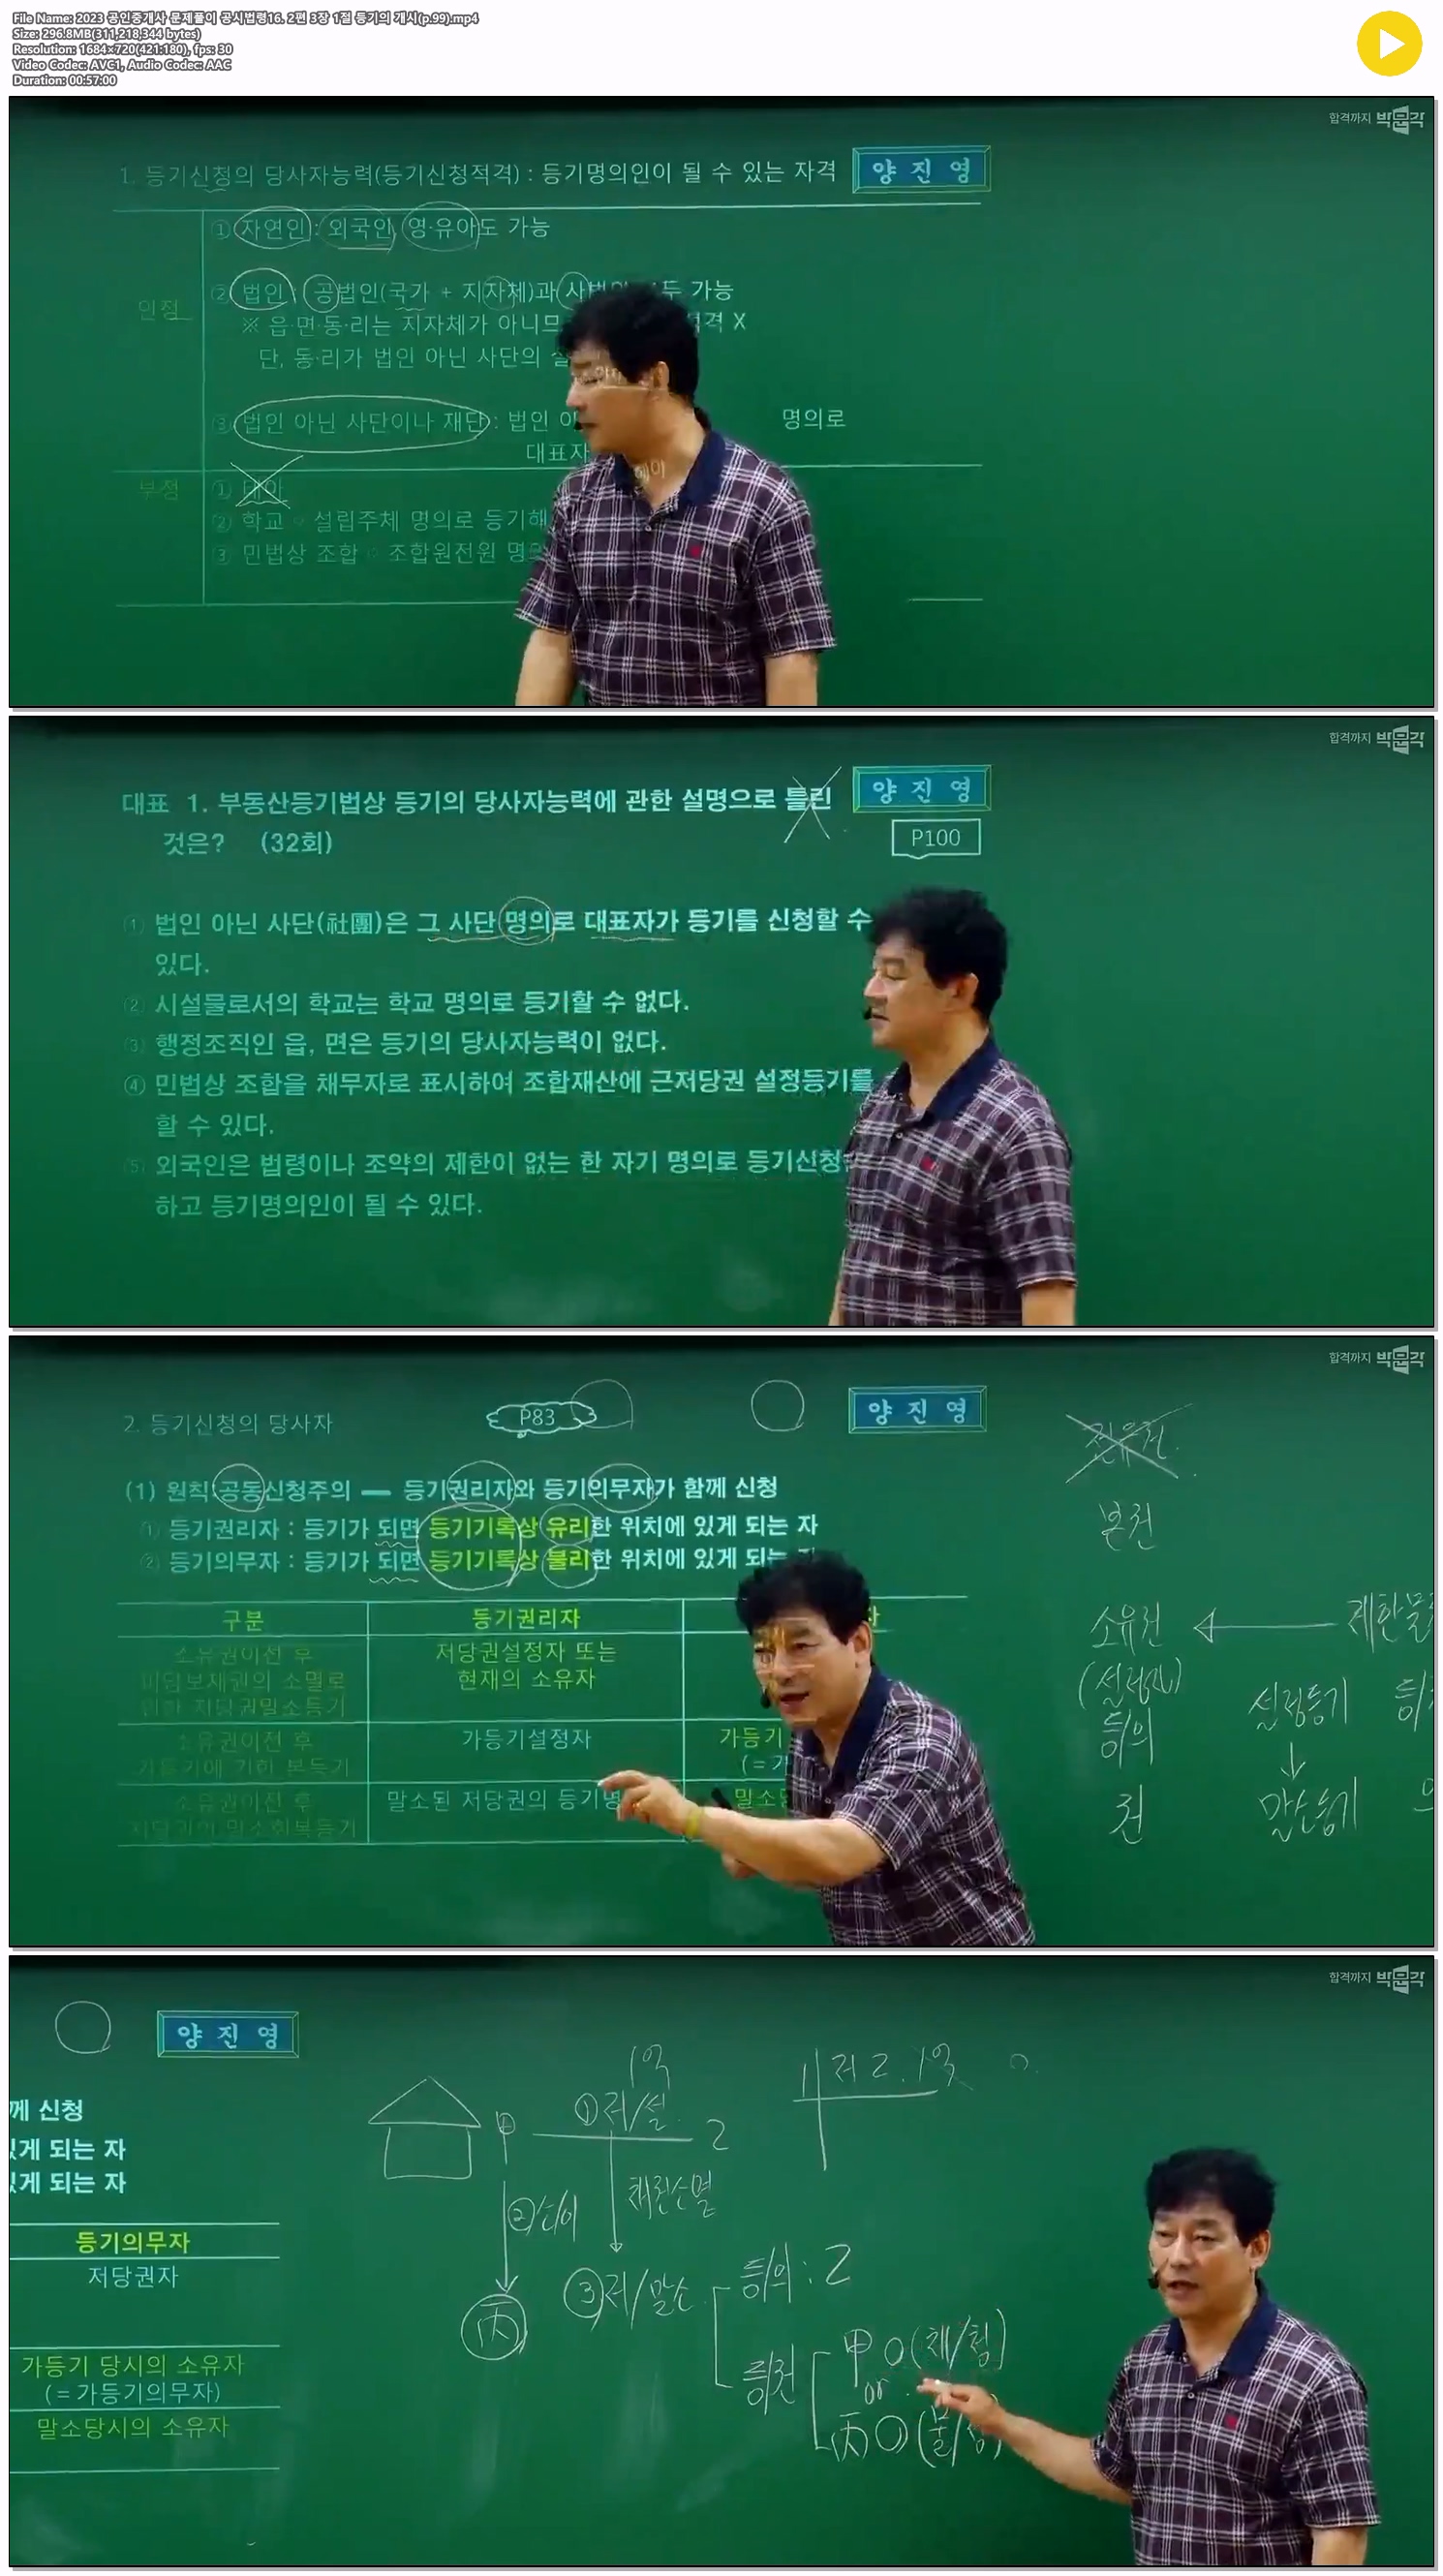 File Name: 2023 공인중개사 문제풀이 공시법령16. 2편 3장 1절 등기의 개시(p.99).mp4
Size: 296.8MB(311,218,344 bytes)
Resolution: 1684×720(421:180), fps: 30
Video Codec: AVC1, Audio Codec: AAC
Duration: 00:57:00
합격까지 박문각
1. 등기신청의 당사자능력(등기신청적격) : 등기명의인이 될 수 있는 자격
양 진 영
인정
① 자연인 : 외국인, 영·유아도 가능
② 법인 : 공법인(국가 + 지자체)과 사법인 모두 가능
※ 읍·면·동·리는 지자체가 아니므 격 X
단, 동·리가 법인 아닌 사단의 실
③ 법인 아닌 사단이나 재단 : 법인 아 명의로
대표자
부정
① 태아
② 학교 설립주체 명의로 등기해
③ 민법상 조합 조합원전원 명의
합격까지 박문각
대표 1. 부동산등기법상 등기의 당사자능력에 관한 설명으로 틀린
것은? (32회)
양 진 영
P100
① 법인 아닌 사단(社團)은 그 사단 명의로 대표자가 등기를 신청할 수
있다.
② 시설물로서의 학교는 학교 명의로 등기할 수 없다.
③ 행정조직인 읍, 면은 등기의 당사자능력이 없다.
④ 민법상 조합을 채무자로 표시하여 조합재산에 근저당권 설정등기를
할 수 있다.
⑤ 외국인은 법령이나 조약의 제한이 없는 한 자기 명의로 등기신청
하고 등기명의인이 될 수 있다.
합격까지 박문각
2. 등기신청의 당사자
P83
양 진 영
(1) 원칙:공동신청주의 ━ 등기권리자와 등기의무자가 함께 신청
① 등기권리자 : 등기가 되면 등기기록상 유리한 위치에 있게 되는 자
② 등기의무자 : 등기가 되면 등기기록상 불리한 위치에 있게 되는 자
구분 등기권리자 자
소유권이전 후
피담보채권의 소멸로
인한 저당권말소등기
저당권설정자 또는
현재의 소유자
소유권이전 후
가등기에 기한 본등기
가등기설정자
가등기
(=가
소유권이전 후
저당권의 말소회복등기
말소된 저당권의 등기명
말소당
전유권
본권
소유권
제한물
(설정자)
등/의
권
설정등기
말소등기
합격까지 박문각
양 진 영
께 신청
있게 되는 자
있게 되는 자
등기의무자
저당권자
가등기 당시의 소유자
(=가등기의무자)
말소당시의 소유자
1억
甲 ①저/설 乙
저 乙. 1억
②소/이
채권소멸
丙
③저/말소
등/의 : 乙
등/권
甲 O (채/청)
or
丙 O (물/청)